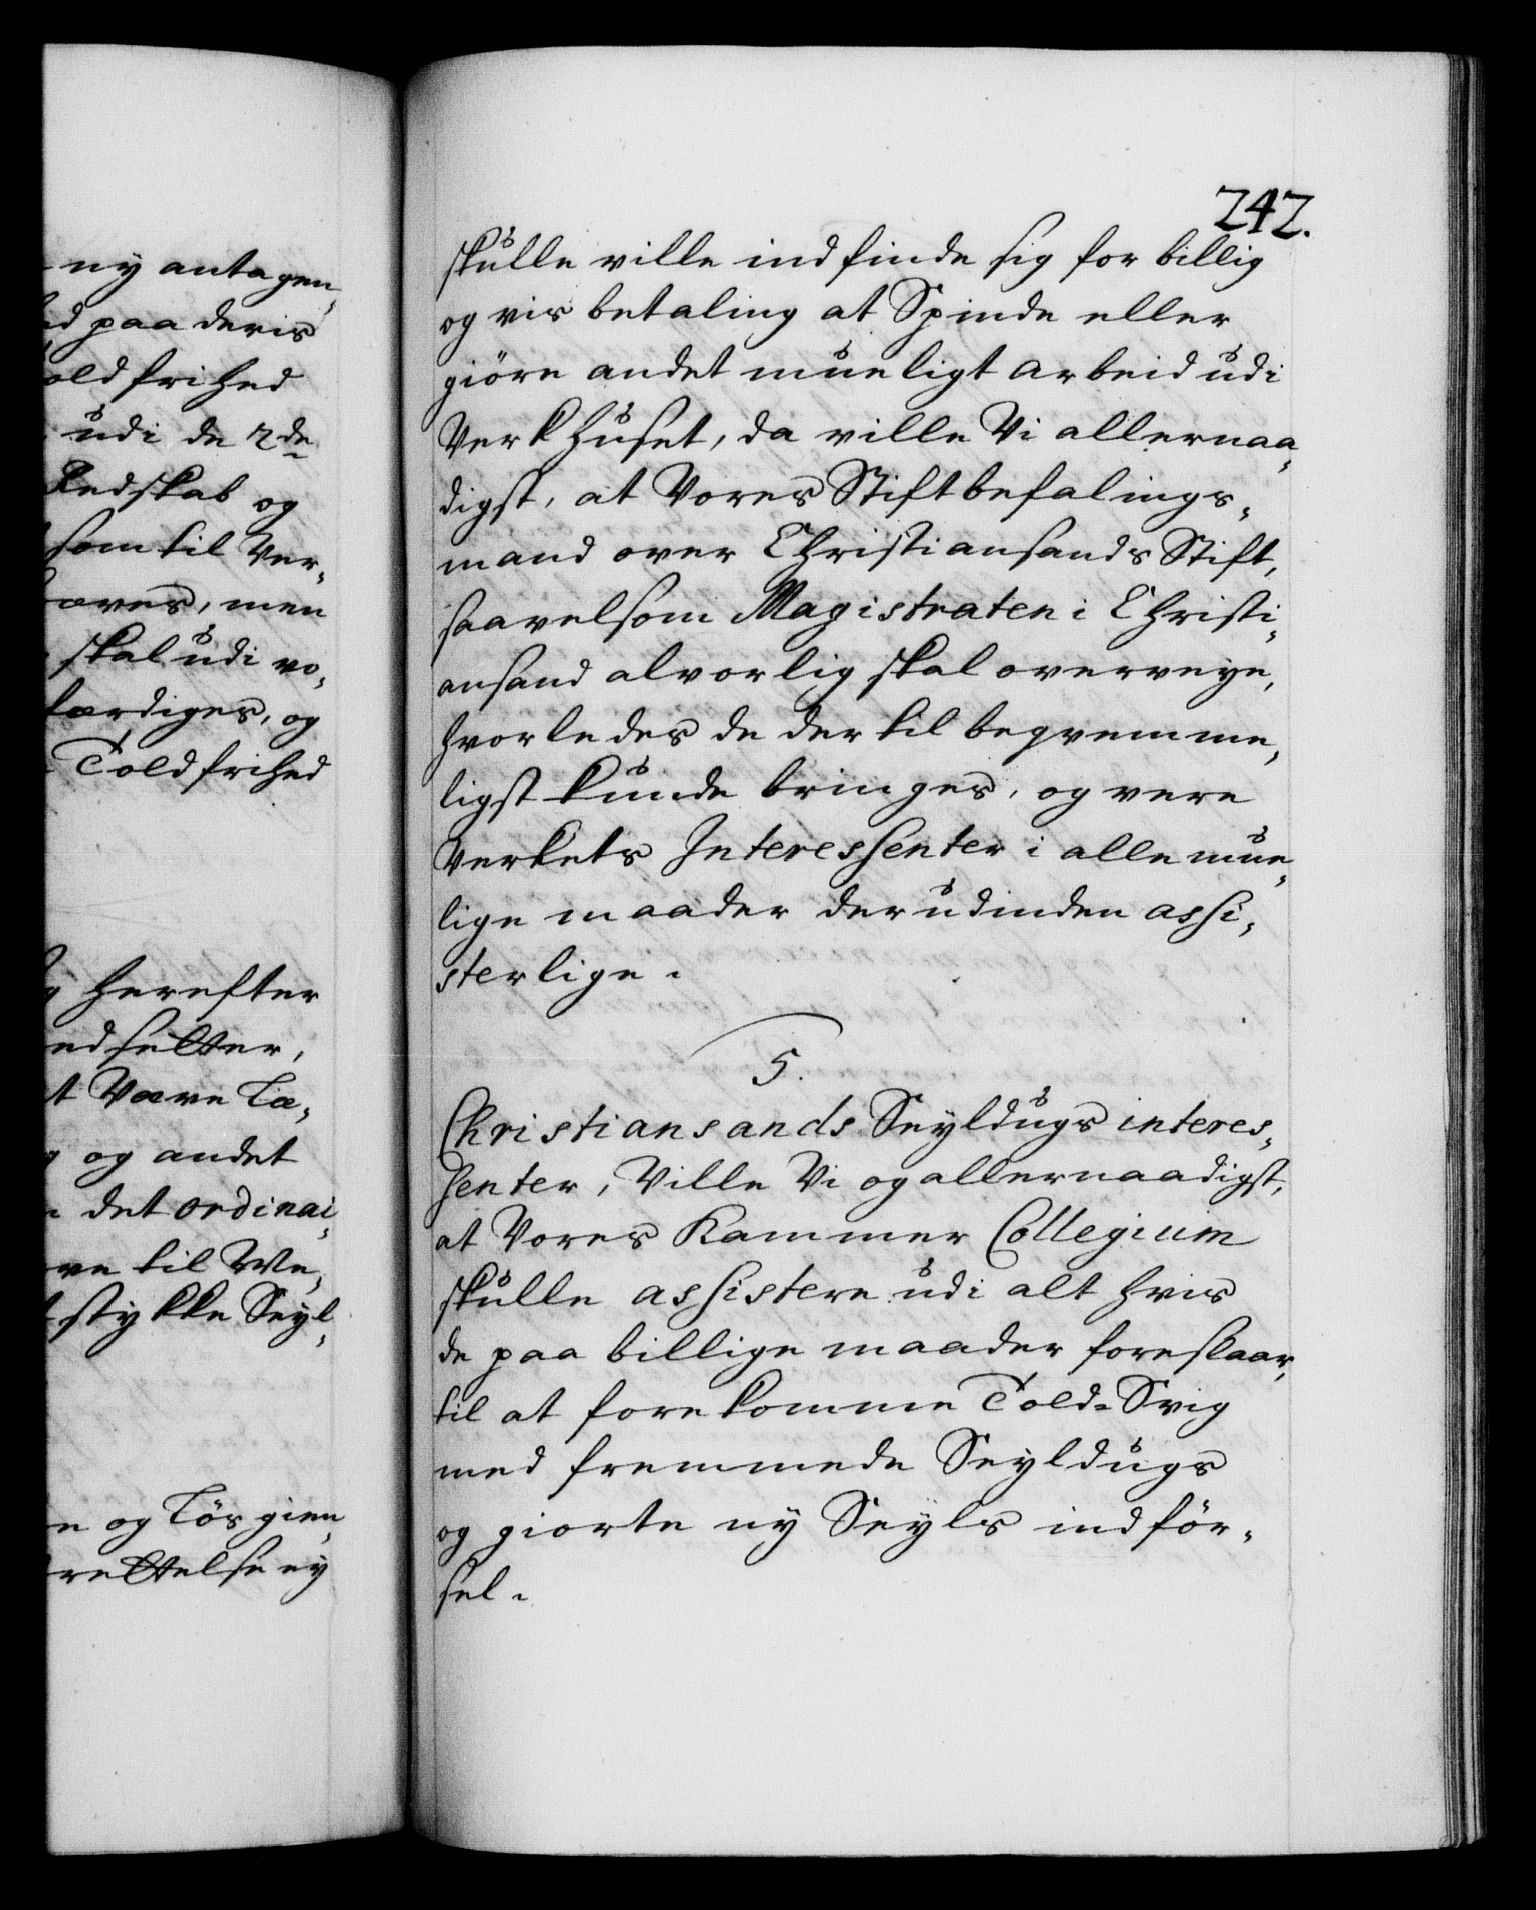 ny antagen¸
paa deris
frihed
udi de 2de
Redskab og
som til Ver¸
men
skal udi vo¸
færdiges, og
Toldfrihed
herefter
t Være La¸
og andet
det ordinai¸
re til We¸
stykke Seyl¸
og Tös gien¸
ny
242.
skulle ville indfinde sig for billig
og vis betaling at Spinde eller
giöre andet mueligt arbeid udi
Verkhuset, da ville Vi allernaa¸
digst, at Vores Stiftbefalings¸
mand over Christiansands Stift,
saavelsom Magistraten i Christi¸
ansand alvorlig skal overveye,
hvorledes de dertil beqvemme¸
ligst kunde bringes, og være
Verkets Interessenter i alle mue¸
lige maader derudinden assi¸
sterlige.
5.
Christiansands Seyldugs interes¸
senter, Ville Vi og allernaadigst,
at Vores Kammer Collegium
skulle assistere udi alt hvis
de paa billige maader foreslaar,
til at forekomme Told-Svig
med fremmede Seyldugs
og giorte ny Seyls indför¸
sel.